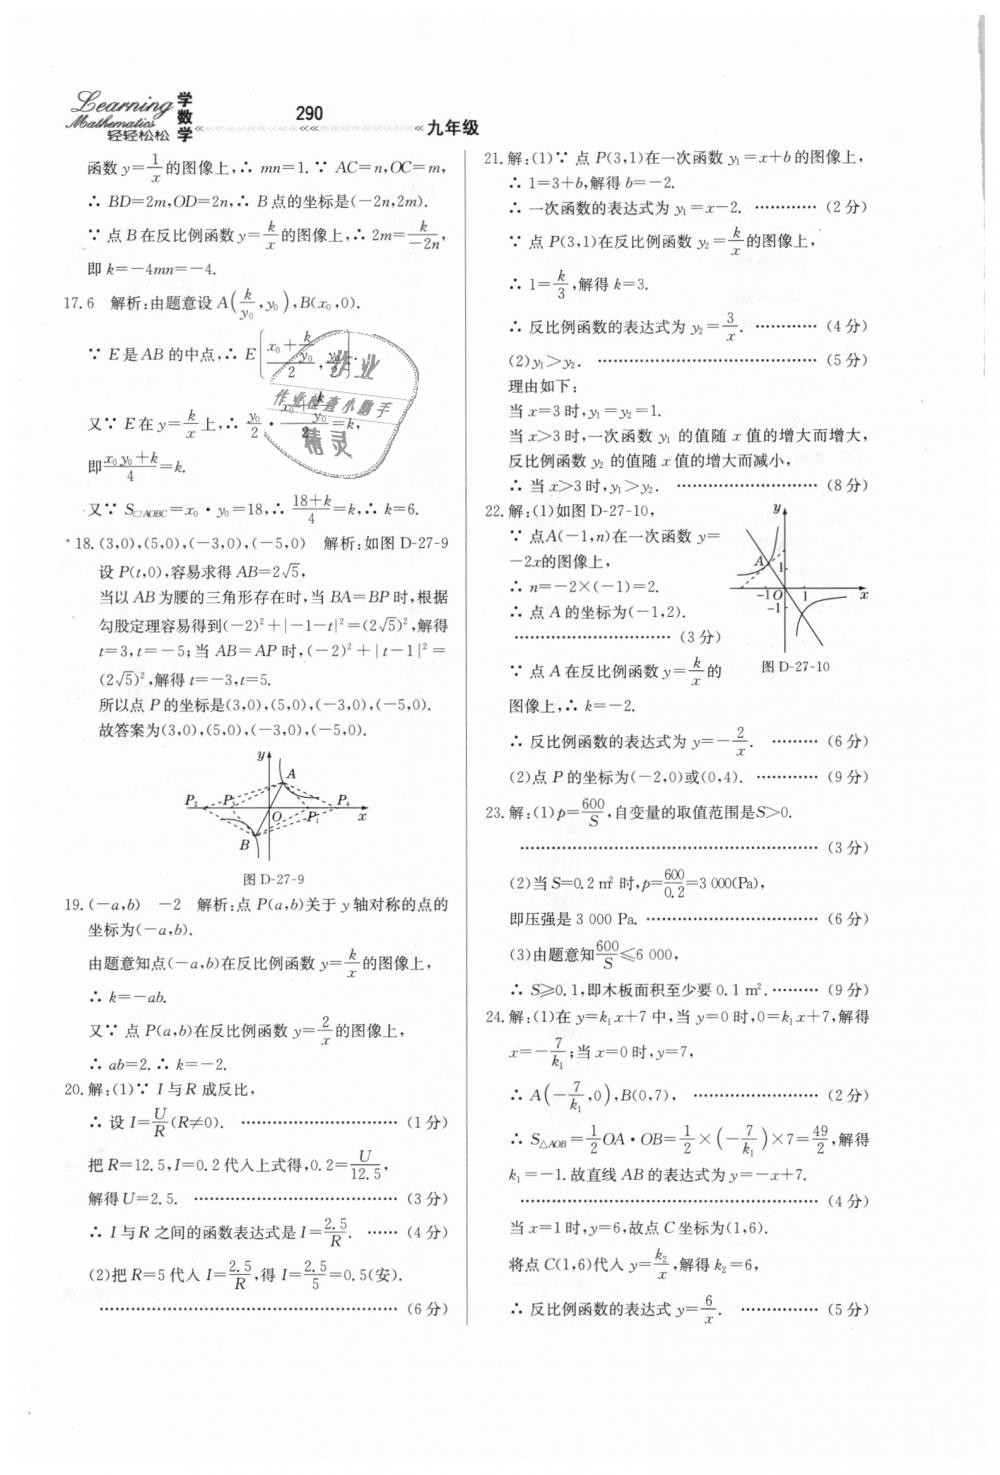 Learning
Mathematics
轻轻松松
学数学
290
九年级
函数 y=1/x 的图像上,∴ mn=1.∵ AC=n,OC=m,
∴ BD=2m,OD=2n,∴ B点的坐标是(-2n,2m).
∵ 点B在反比例函数 y=k/x 的图像上,∴ 2m=k/-2n,
即 k=-4mn=-4.
17.6 解析:由题意设 A(k/y₀,y₀),B(x₀,0).
∵ E是AB的中点,∴ E((x₀+k/y₀)/2,y₀/2).
又∵ E在 y=k/x 上,∴ y₀/2·(x₀+k/y₀)/2=k,
即 (x₀y₀+k)/4=k.
又∵ S□AOBC=x₀·y₀=18,∴ (18+k)/4=k,∴ k=6.
18.(3,0),(5,0),(-3,0),(-5,0) 解析:如图 D-27-9
设 P(t,0),容易求得 AB=2√5,
当以AB为腰的三角形存在时,当 BA=BP 时,根据
勾股定理容易得到(-2)²+|-1-t|²=(2√5)²,解得
t=3,t=-5;当 AB=AP 时,(-2)²+|t-1|²=
(2√5)²,解得 t=-3,t=5.
所以点 P 的坐标是(3,0),(5,0),(-3,0),(-5,0).
故答案为(3,0),(5,0),(-3,0),(-5,0).
y
A
P₂ P₃ O P₁ P₄ x
B
图 D-27-9
19.(-a,b) -2 解析:点 P(a,b)关于 y轴对称的点的
坐标为(-a,b).
由题意知点(-a,b)在反比例函数 y=k/x 的图像上,
∴ k=-ab.
又∵ 点 P(a,b)在反比例函数 y=2/x 的图像上,
∴ ab=2.∴ k=-2.
20.解:(1)∵ I与R 成反比,
∴ 设 I=U/R(R≠0). ……………………(1分)
把 R=12.5,I=0.2代入上式得,0.2=U/12.5,
解得U=2.5. ……………………………(3分)
∴ I与R之间的函数表达式是 I=2.5/R. ……(4分)
(2)把R=5代入 I=2.5/R,得 I=2.5/5=0.5(安).
……………………………………………(6分)
21.解:(1)∵ 点 P(3,1)在一次函数 y₁=x+b的图像上,
∴ 1=3+b,解得 b=-2.
∴ 一次函数的表达式为 y₁=x-2. …………(2分)
∵ 点 P(3,1)在反比例函数 y₂=k/x 的图像上,
∴ 1=k/3,解得 k=3.
∴ 反比例函数的表达式为 y₂=3/x. …………(4分)
(2)y₁>y₂. …………………………………(5分)
理由如下:
当 x=3时,y₁=y₂=1.
当 x>3时,一次函数 y₁ 的值随 x 值的增大而增大,
反比例函数 y₂ 的值随 x值的增大而减小,
∴ 当 x>3时,y₁>y₂. ……………………(8分)
22.解:(1)如图 D-27-10,
∵ 点A(-1,n)在一次函数 y=
-2x的图像上,
∴ n=-2×(-1)=2.
∴ 点 A 的坐标为(-1,2).
………………………(3分)
y
A
1
-1 O 1 x
-1
图 D-27-10
∵ 点 A 在反比例函数 y=k/x 的
图像上,∴ k=-2.
∴ 反比例函数的表达式为 y=-2/x. ………(6分)
(2)点 P 的坐标为(-2,0)或(0,4). …………(9分)
23.解:(1)p=600/S,自变量的取值范围是S>0.
……………………………………………(3分)
(2)当 S=0.2 m² 时,p=600/0.2=3 000(Pa),
即压强是 3 000 Pa. …………………………(6分)
(3)由题意知600/S≤6 000,
∴ S≥0.1,即木板面积至少要 0.1 m². ………(9分)
24.解:(1)在 y=k₁x+7中,当 y=0时,0=k₁x+7,解得
x=-7/k₁;当 x=0时,y=7,
∴ A(-7/k₁,0),B(0,7), …………………(2分)
∴ S△AOB=1/2OA·OB=1/2×(-7/k₁)×7=49/2,解得
k₁=-1.故直线 AB的表达式为 y=-x+7.
……………………………………………(4分)
当 x=1时,y=6,故点 C坐标为(1,6).
将点 C(1,6)代入 y=k₂/x,解得 k₂=6,
∴ 反比例函数的表达式 y=6/x. ……………(5分)
作业
作业检查小助手
精灵